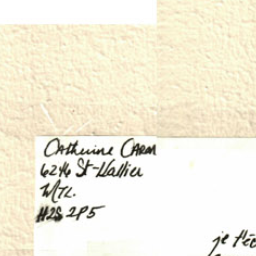 Catherine CARM
6246 St-Vallier
MTL.
H2S 2P5
je t'éc